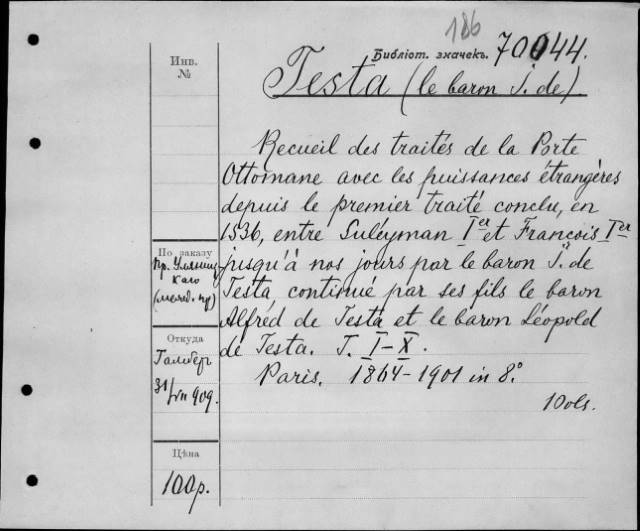 186
Библіот. значекъ. 70044.
Testa (le baron J. de)
Инв.
№
Recueil des traités de la Porte
Ottomane avec les puissances étrangères
depuis le premier traité conclu, en
1536, entre Suléyman Ier et François Ier
jusqu'à nos jours par le baron J. de
Testa, continué par ses fils le baron
Alfred de Testa et le baron Léopold
de Testa. T. I-X.
Paris. 1864-1901 in 8°.
10 vls.
По заказу
Пр.
Откуда
31/ 909.
Цѣна
100р.